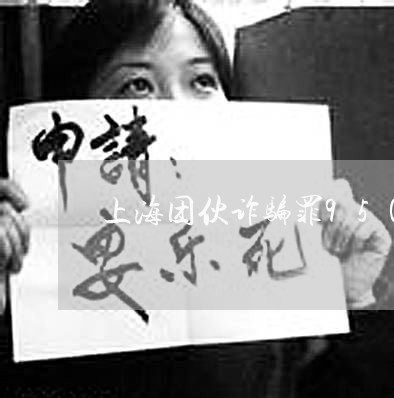 申請：
上海团伙诈骗罪95(
安乐死